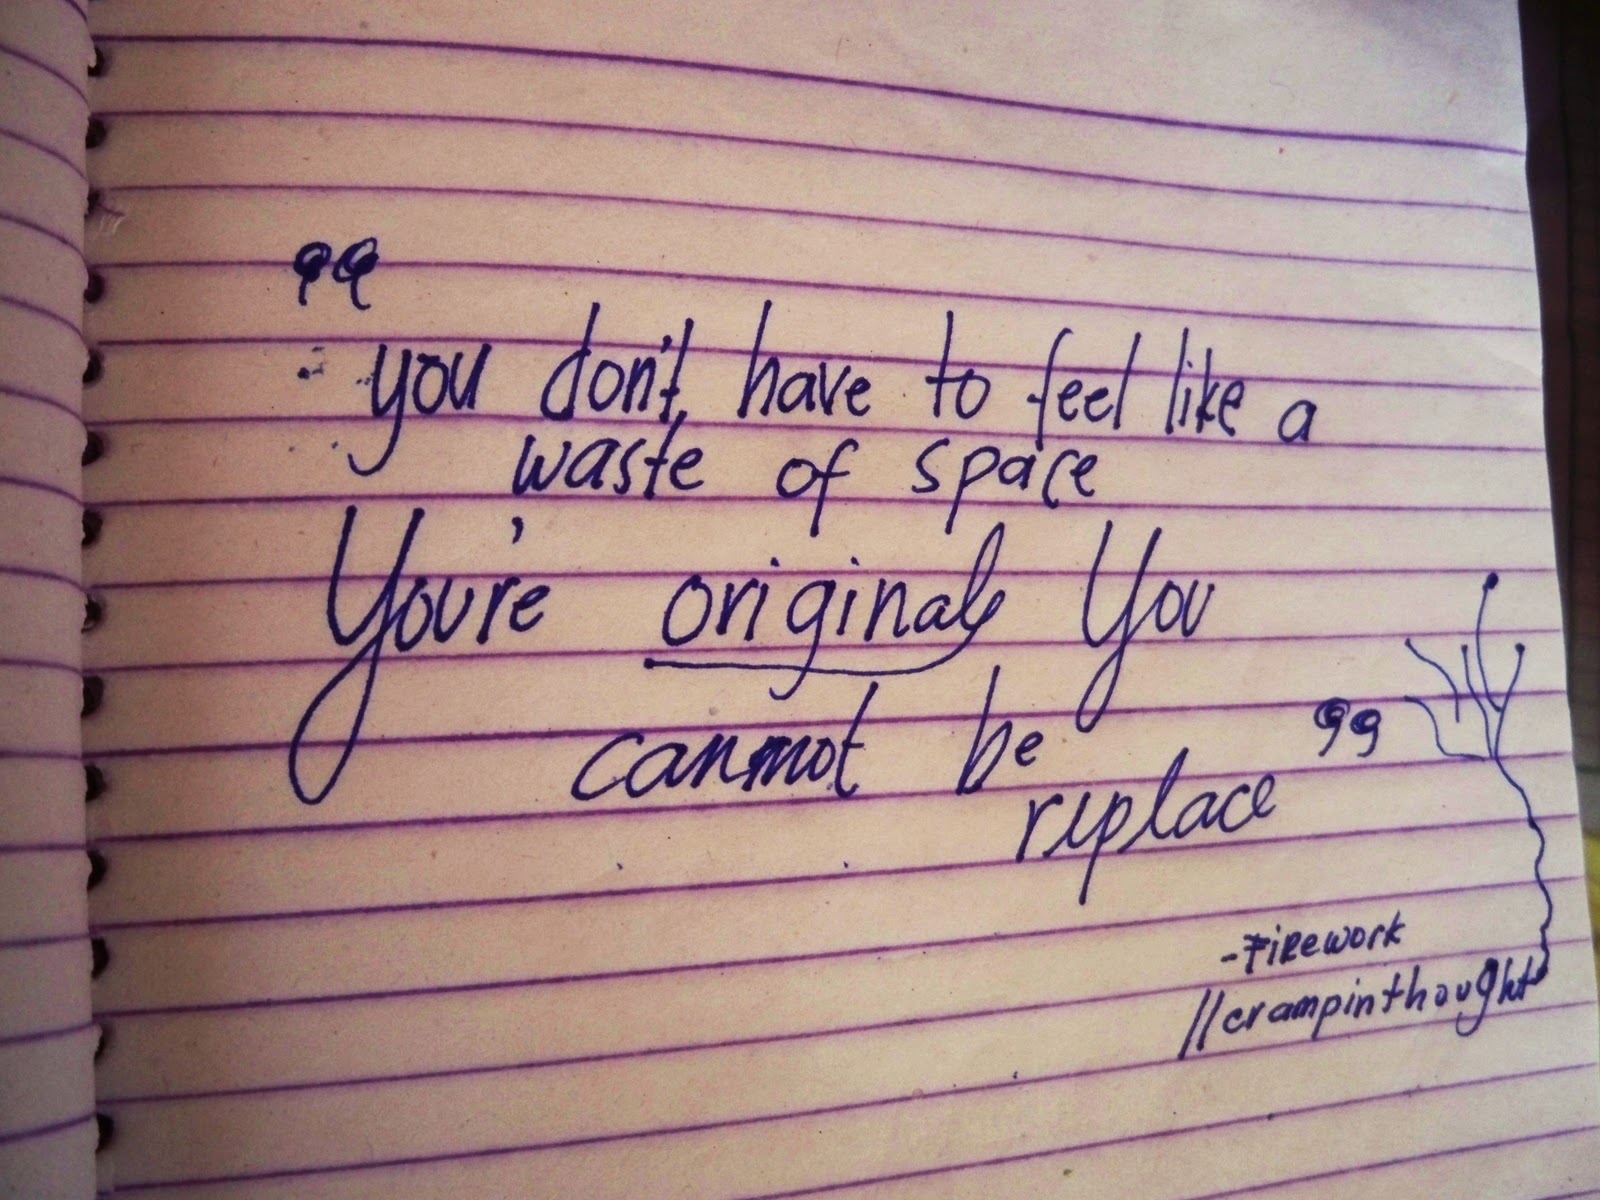 "you don't have to feel like a
waste of space
You're original, You
cannot be
replace"
-Firework
//crampinthought